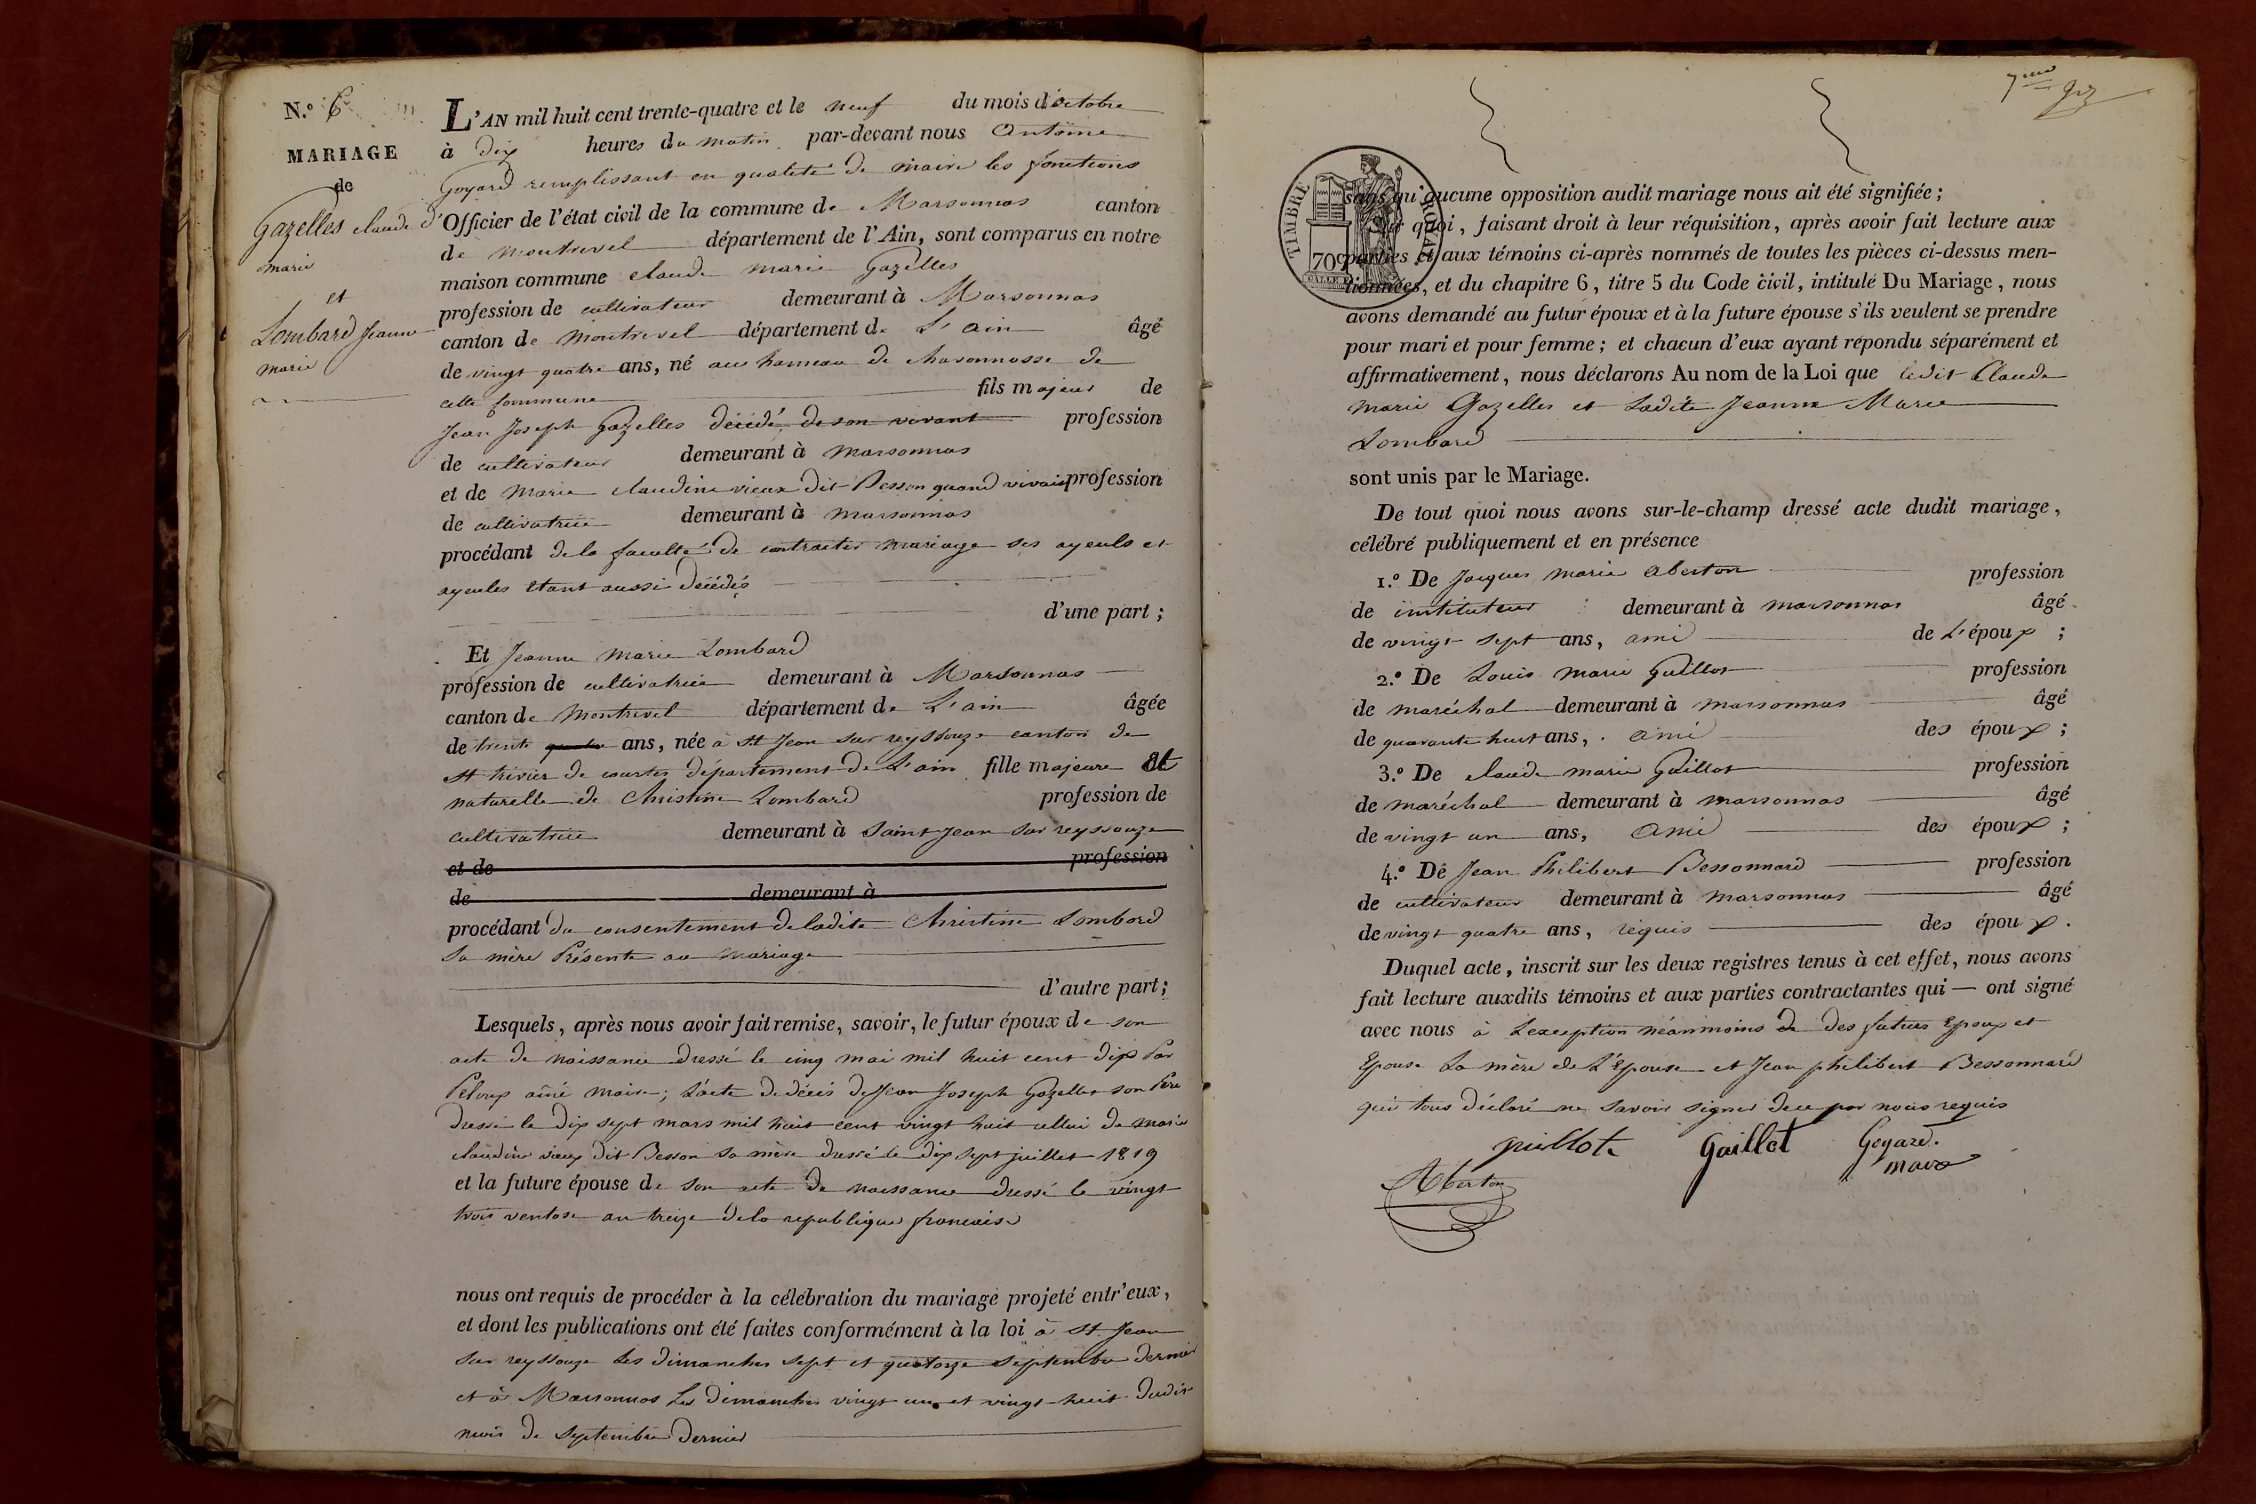 N.o 6
MARIAGE
de
Gazelles claude
marie
et
Lombard Jeanne
marie
L'AN mil huit cent trente-quatre et le neuf du mois d'octobre
à dix heures du matin par-devant nous Antoine
Goyard remplissant en qualité de maire les fonctions
d'Officier de l'état civil de la commune de Marsonnas canton
de montrevel département de l'Ain, sont comparus en notre
maison commune claude marie Gazelles
profession de cultivateur demeurant à Marsonnas
canton de Montrevel département de L'ain âgé
de vingt quatre ans, né au hameau de chavannosse de
cette commune fils majeur de
Jean Joseph Gazelles décédé, de son vivant profession
de cultivateur demeurant à marsonnas
et de Marie claudine vieux dit Besson quand vivait profession
de cultivatrice demeurant à marsonnas
procédant de la faculté de contracter mariage ses ayeuls et
ayeules étant aussi décédés
d'une part ;
Et Jeanne Marie Lombard
profession de cultivatrice demeurant à Marsonnas
canton de Montrevel département de L'ain âgée
de trente ans, née à St Jean sur reyssouze canton de
st trivier de courtes département de L'ain fille majeure et
naturelle de Christine Lombard profession de
cultivatrice demeurant à Saint Jean sur reyssouze
et de profession
de demeurant à
procédant du consentement de ladite Christine Lombard
Sa mère Présente au mariage
d'autre part ;
Lesquels, après nous avoir fait remise, savoir, le futur époux de son
acte de naissance dressé le cinq mai mil huit cent dix Par
Peloux ainé maire ; L'acte de décès de Jean Joseph Gazelles son Père
dressé le dix sept mars mil huit cent vingt huit cellui de marie
claudine vieux dit Besson sa mère dressé le dix sept juillet 1819
et la future épouse de son acte de naissance dressé le vingt
trois ventose an treize de la republique francaise
nous ont requis de procéder à la célébration du mariage projeté entr'eux,
et dont les publications ont été faites conformément à la loi à St Jean
sur reyssouze Les dimanches sept et quatorze septembre dernier
et à Marsonnas Les dimanches vingt un et vingt huit dudit
mois de septembre dernier
7me
TIMBRE ROYAL
70c
sans qu'aucune opposition audit mariage nous ait été signifiée ;
Sur quoi, faisant droit à leur réquisition, après avoir fait lecture aux
parties et aux témoins ci-après nommés de toutes les pièces ci-dessus men-
tionnées, et du chapitre 6, titre 5 du Code civil, intitulé Du Mariage, nous
avons demandé au futur époux et à la future épouse s'ils veulent se prendre
pour mari et pour femme ; et chacun d'eux ayant répondu séparément et
affirmativement, nous déclarons Au nom de la Loi que ledit Claude
Marie Gazelles et Ladite Jeanne Marie
Lombard
sont unis par le Mariage.
De tout quoi nous avons sur-le-champ dressé acte dudit mariage,
célébré publiquement et en présence
1.o De Jacques marie Aberton profession
de instituteur demeurant à marsonnas âgé
de vingt sept ans, ami de L'époux ;
2.o De Louis marie Guillot profession
de maréchal demeurant à marsonnas âgé
de quarante huit ans, ami des époux ;
3.o De claude marie Guillot profession
de maréchal demeurant à marsonnas âgé
de vingt un ans, Ami des époux ;
4.o De Jean Philibert Bessonnard profession
de cultivateur demeurant à marsonnas âgé
de vingt quatre ans, requis des époux.
Duquel acte, inscrit sur les deux registres tenus à cet effet, nous avons
fait lecture auxdits témoins et aux parties contractantes qui — ont signé
avec nous à L'exception néanmoins de des futurs Epoux et
Epouse La mère de L'Epouse et Jean philibert Bessonnard
qui tous déclaré ne savoir signer de ce par nous requis
Guillot Goyard.
Aberton maire